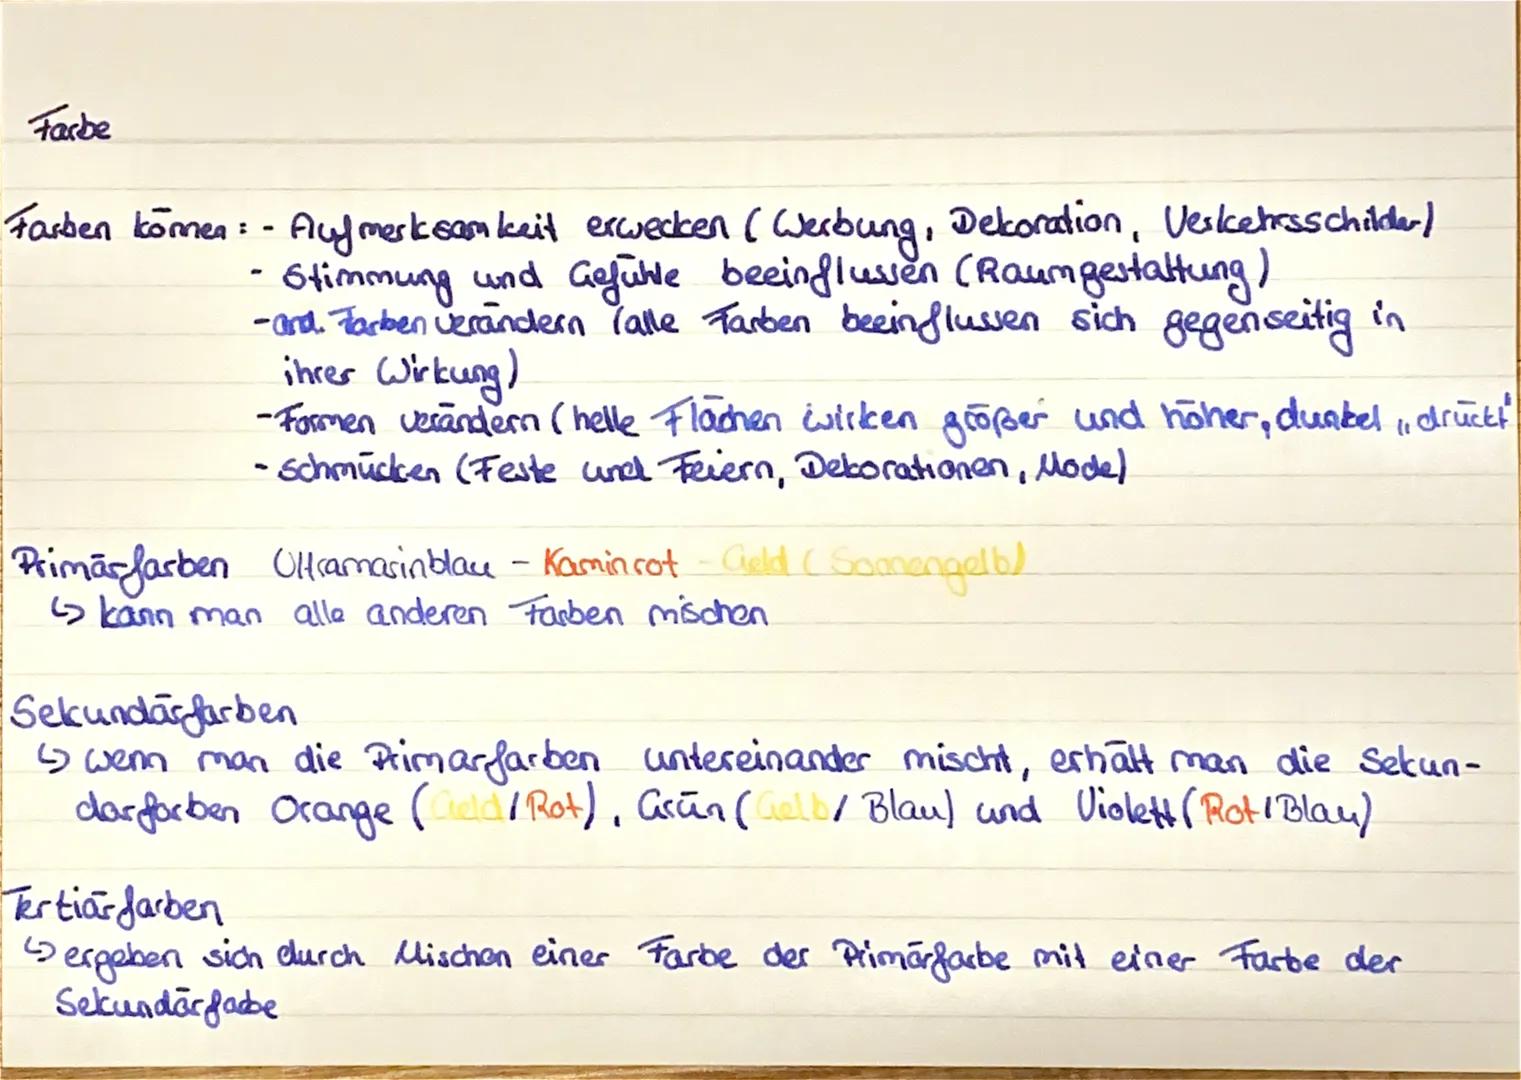 Farbe
Farben können: - Aufmerksamkeit erwecken (Werbung, Dekoration, Verkehrsschilder)
- Stimmung und Gefühle beeinflussen (Raumgestaltung)
- and. Farben verändern (alle Farben beeinflussen sich gegenseitig in
ihrer Wirkung)
- Formen verändern (helle Flächen wirken größer und höher, dunkel „drückt"
- schmücken (Feste und Feiern, Dekorationen, Mode)
Primärfarben Ultramarinblau - Kaminrot - Geld (Sonnengelb)
↳ kann man alle anderen Farben mischen
Sekundärfarben
↳ wenn man die Primarfarben untereinander mischt, erhält man die Sekun-
darfarben Orange (Geld/Rot), Grün (Gelb/Blau) und Violett (Rot/Blau)
Tertiärfarben
↳ ergeben sich durch Mischen einer Farbe der Primärfarbe mit einer Farbe der
Sekundärfabe